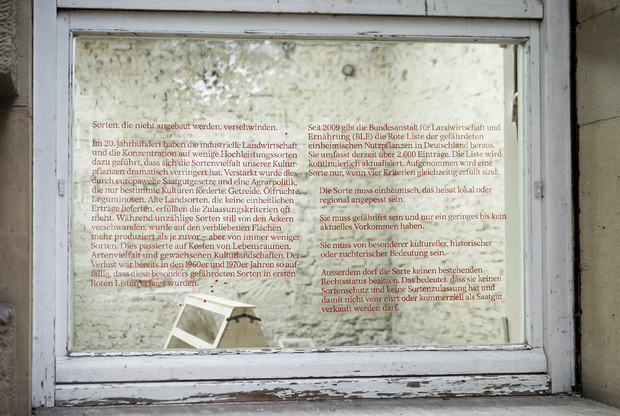 Sorten, die nicht angebaut werden, verschwinden.
Im 20. Jahrhundert haben die industrielle Landwirtschaft
und die Konzentration auf wenige Hochleistungssorten
dazu geführt, dass sich die Sortenvielfalt unserer Kultur-
pflanzen dramatisch verringert hat. Verstärkt wurde dies
durch europaweite Saatgutgesetze und eine Agrarpolitik,
die nur bestimmte Kulturen förderte: Getreide, Ölfrüchte,
Leguminosen. Alte Landsorten, die keine einheitlichen
Erträge lieferten, erfüllten die Zulassungskriterien oft
nicht. Während unzählige Sorten still von den Äckern
verschwanden, wurde auf den verbliebenen Flächen
mehr produziert als je zuvor – aber von immer weniger
Sorten. Dies passierte auf Kosten von Lebensräumen,
Artenvielfalt und gewachsenen Kulturlandschaften. Der
Verlust war bereits in den 1960er und 1970er Jahren so auf-
fällig, dass diese besonders gefährdeten Sorten in ersten
Roten Listen erfasst wurden.
Seit 2009 gibt die Bundesanstalt für Landwirtschaft und
Ernährung (BLE) die Rote Liste der gefährdeten
einheimischen Nutzpflanzen in Deutschland heraus.
Sie umfasst derzeit über 2.600 Einträge. Die Liste wird
kontinuierlich aktualisiert. Aufgenommen wird eine
Sorte nur, wenn vier Kriterien gleichzeitig erfüllt sind:
Die Sorte muss einheimisch, das heisst lokal oder
regional angepasst sein.
Sie muss gefährdet sein und nur ein geringes bis kein
aktuelles Vorkommen haben.
Sie muss von besonderer kultureller, historischer
oder züchterischer Bedeutung sein.
Ausserdem darf die Sorte keinen bestehenden
Rechtsstatus besitzen. Das bedeutet, dass sie keinen
Sortenschutz und keine Sortenzulassung hat und
damit nicht vermehrt oder kommerziell als Saatgut
verkauft werden darf.